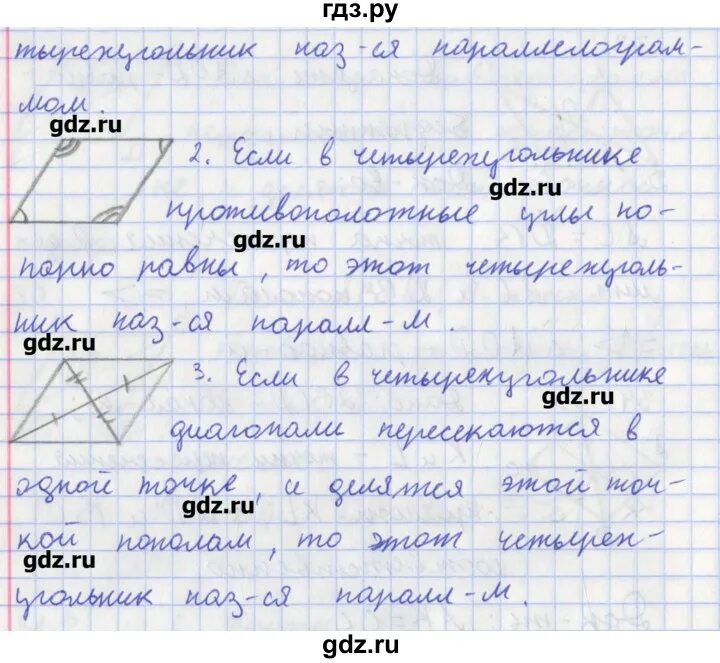 гдз.ру
тырехугольник наз-ся параллелограм-
мом.
gdz.ru
2. Если в четырехугольнике
gdz.ru
противоположные углы по-
gdz.ru
парно равны, то этот четырехуголь-
ник наз-ся паралл-м.
gdz.ru
3. Если в четырехугольнике
gdz.ru
диагонали пересекаются в
одной точке, и делятся этой точ-
gdz.ru
кой пополам, то этот четырех-
gdz.ru
угольник наз-ся паралл-м.
gdz.ru